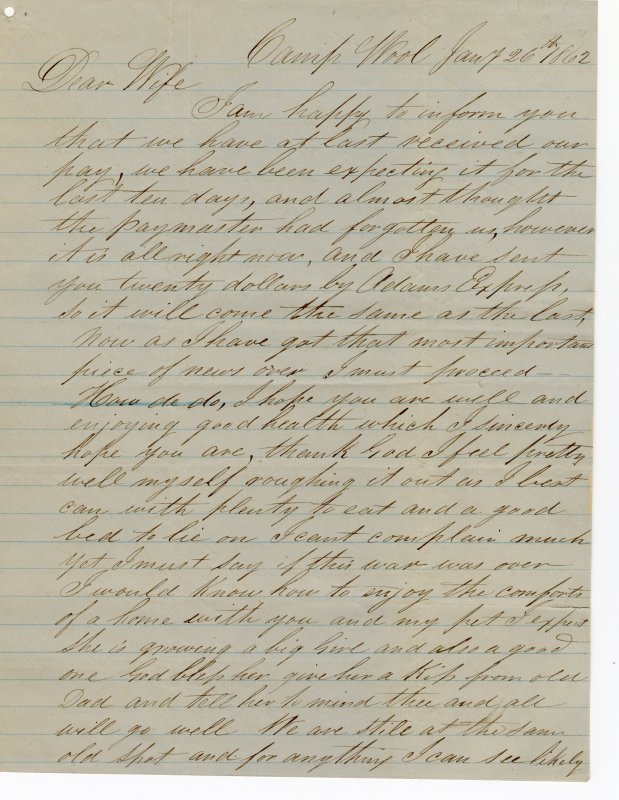 Camp Wool Jany 26th 1862
Dear Wife
I am happy to inform you
that we have at last received our
pay, we have been expecting it for the
last ten days, and almost thought
the paymaster had forgotten us, however
it is all right now, and I have sent
you twenty dollars by Adams Express,
so it will come the same as the last,
Now as I have got that most important
piece of news over I must proceed —
How do do, I hope you are well and
enjoying good health which I sincerly
hope you are, thank God I feel pretty
well myself roughing it out as I best
can with plenty to eat and a good
bed to lie on I cant complain much
yet I must say if this war was over
I would know how to enjoy the comforts
of a home with you and my pet I expect
she is growing a big Girl and also a good
one God bless her give her a Kiss from old
Dad and tell her to mind thee and all
will go well We are stile at the sam
old spot and for anything I can see likely